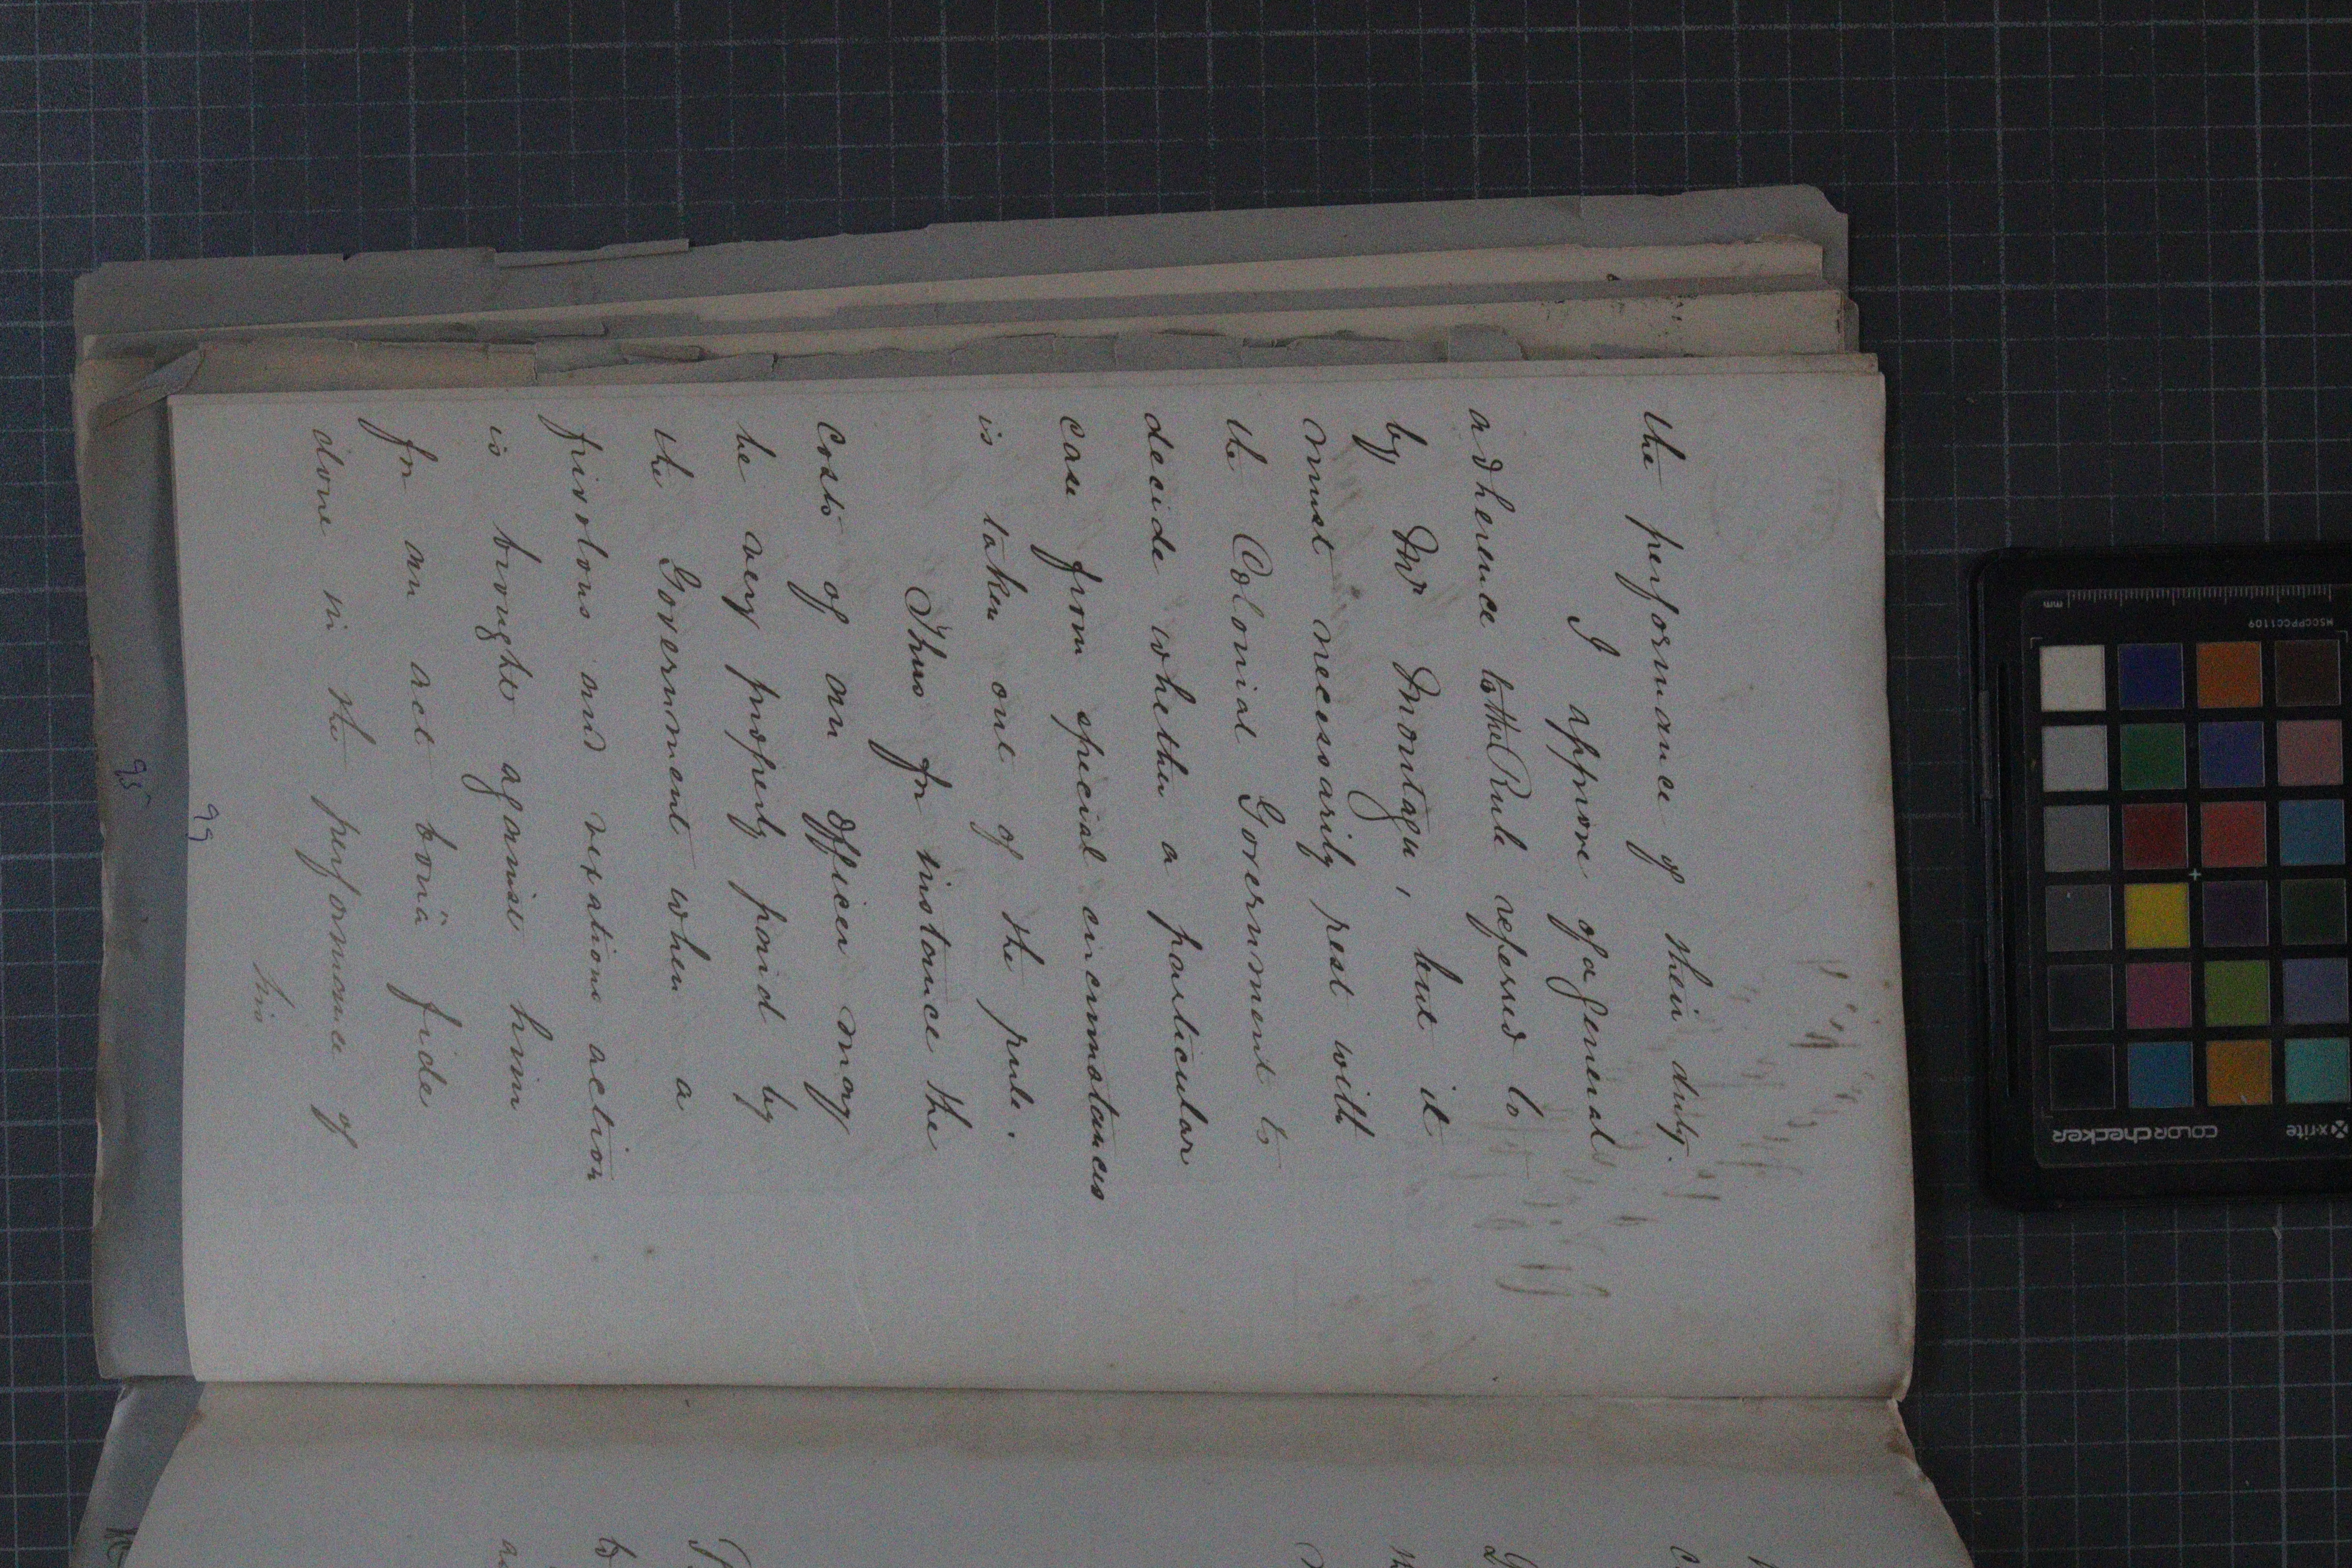 the performance of their duty.
I approve of a general
adherence to the Rule referred to
by Mr Montagu, but it
must necessarily rest with
the Colonial Government to
decide whether a particular
case from special circumstances
is taken out of the rule.
Thus for instance the
costs of an Officer may
be very properly paid by
the Government when a
frivolous and vexatious action
is brought against him
for an act bonâ fide
done in the performance of
his
99
95
x-rite
colorchecker
MSCCPPCC1109
mm